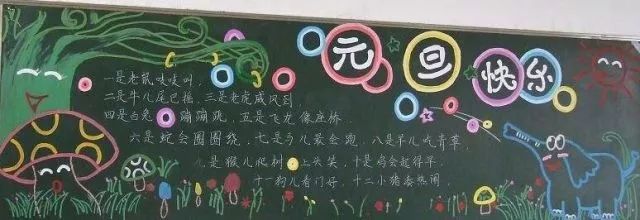 元旦快乐
一是老鼠吱吱叫,
二是牛儿尾巴摇,三是老虎威风到
四是白兔 蹦蹦跳,五是飞龙像座桥
六是蛇会圈圈绕,七是马儿最会跑,八是羊儿吃青草,
九是猴儿爬树 上尖尖,十是鸡会起得早,
十一狗儿看门好,十二小猪凑热闹,